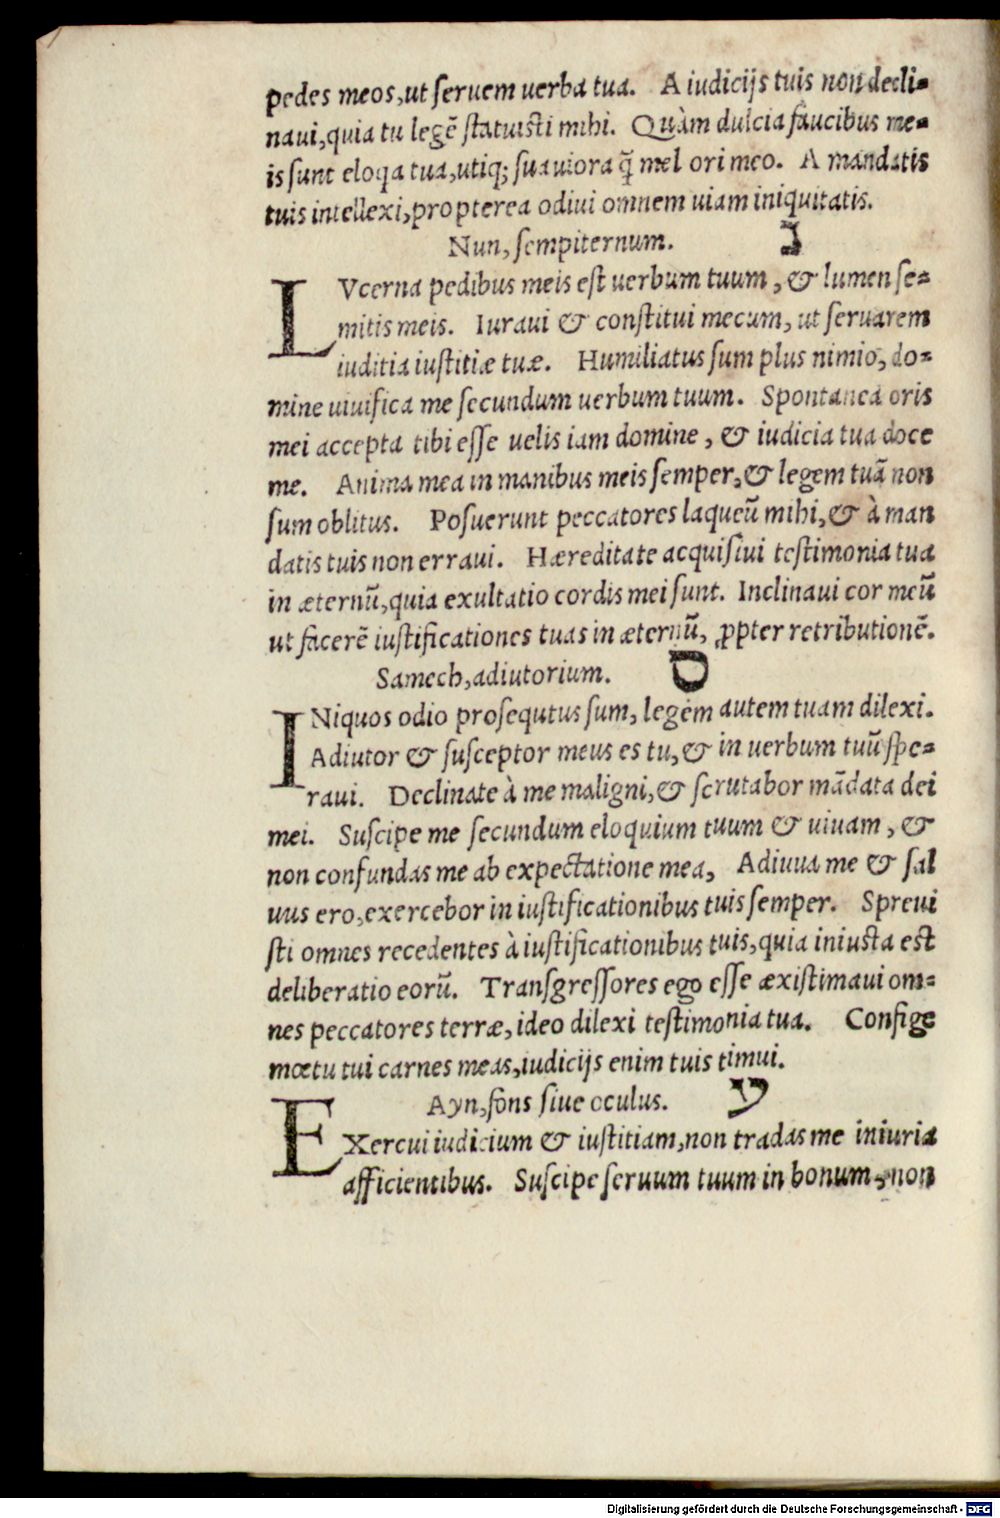 pedes meos, ut seruem uerba tua. A iudicijs tuis non decli-
naui, quia tu legē statuisti mihi. Quàm dulcia faucibus me-
is sunt eloqa tua, utiq; suauiora q̃ mel ori meo. A mandatis
tuis intellexi, propterea odiui omnem uiam iniquitatis.
Nun, sempiternum. נ
LVcerna pedibus meis est uerbum tuum, & lumen se-
mitis meis. Iuraui & constitui mecum, ut seruarem
iuditia iustitiæ tuæ. Humiliatus sum plus nimio, do-
mine uiuifica me secundum uerbum tuum. Spontanea oris
mei accepta tibi esse uelis iam domine, & iudicia tua doce
me. Anima mea in manibus meis semper, & legem tuā non
sum oblitus. Posuerunt peccatores laqueū mihi, & à man
datis tuis non erraui. Hæreditate acquisiui testimonia tua
in æternū, quia exultatio cordis mei sunt. Inclinaui cor meū
ut facerē iustificationes tuas in æternū, ꝓpter retributionē.
Samech, adiutorium. ס
INiquos odio prosequtus sum, legem autem tuam dilexi.
Adiutor & susceptor meus es tu, & in uerbum tuū spe-
raui. Declinate à me maligni, & scrutabor mādata dei
mei. Suscipe me secundum eloquium tuum & uiuam, &
non confundas me ab expectatione mea, Adiuua me & sal
uus ero, exercebor in iustificationibus tuis semper. Spreui
sti omnes recedentes à iustificationibus tuis, quia iniusta est
deliberatio eorū. Transgressores ego esse æxistimaui om-
nes peccatores terræ, ideo dilexi testimonia tua. Confige
mœtu tui carnes meas, iudicijs enim tuis timui.
Ayn, fons siue oculus. ע
EXercui iudicium & iustitiam, non tradas me iniuria
afficientibus. Suscipe seruum tuum in bonum, non
Digitalisierung gefördert durch die Deutsche Forschungsgemeinschaft - DFG